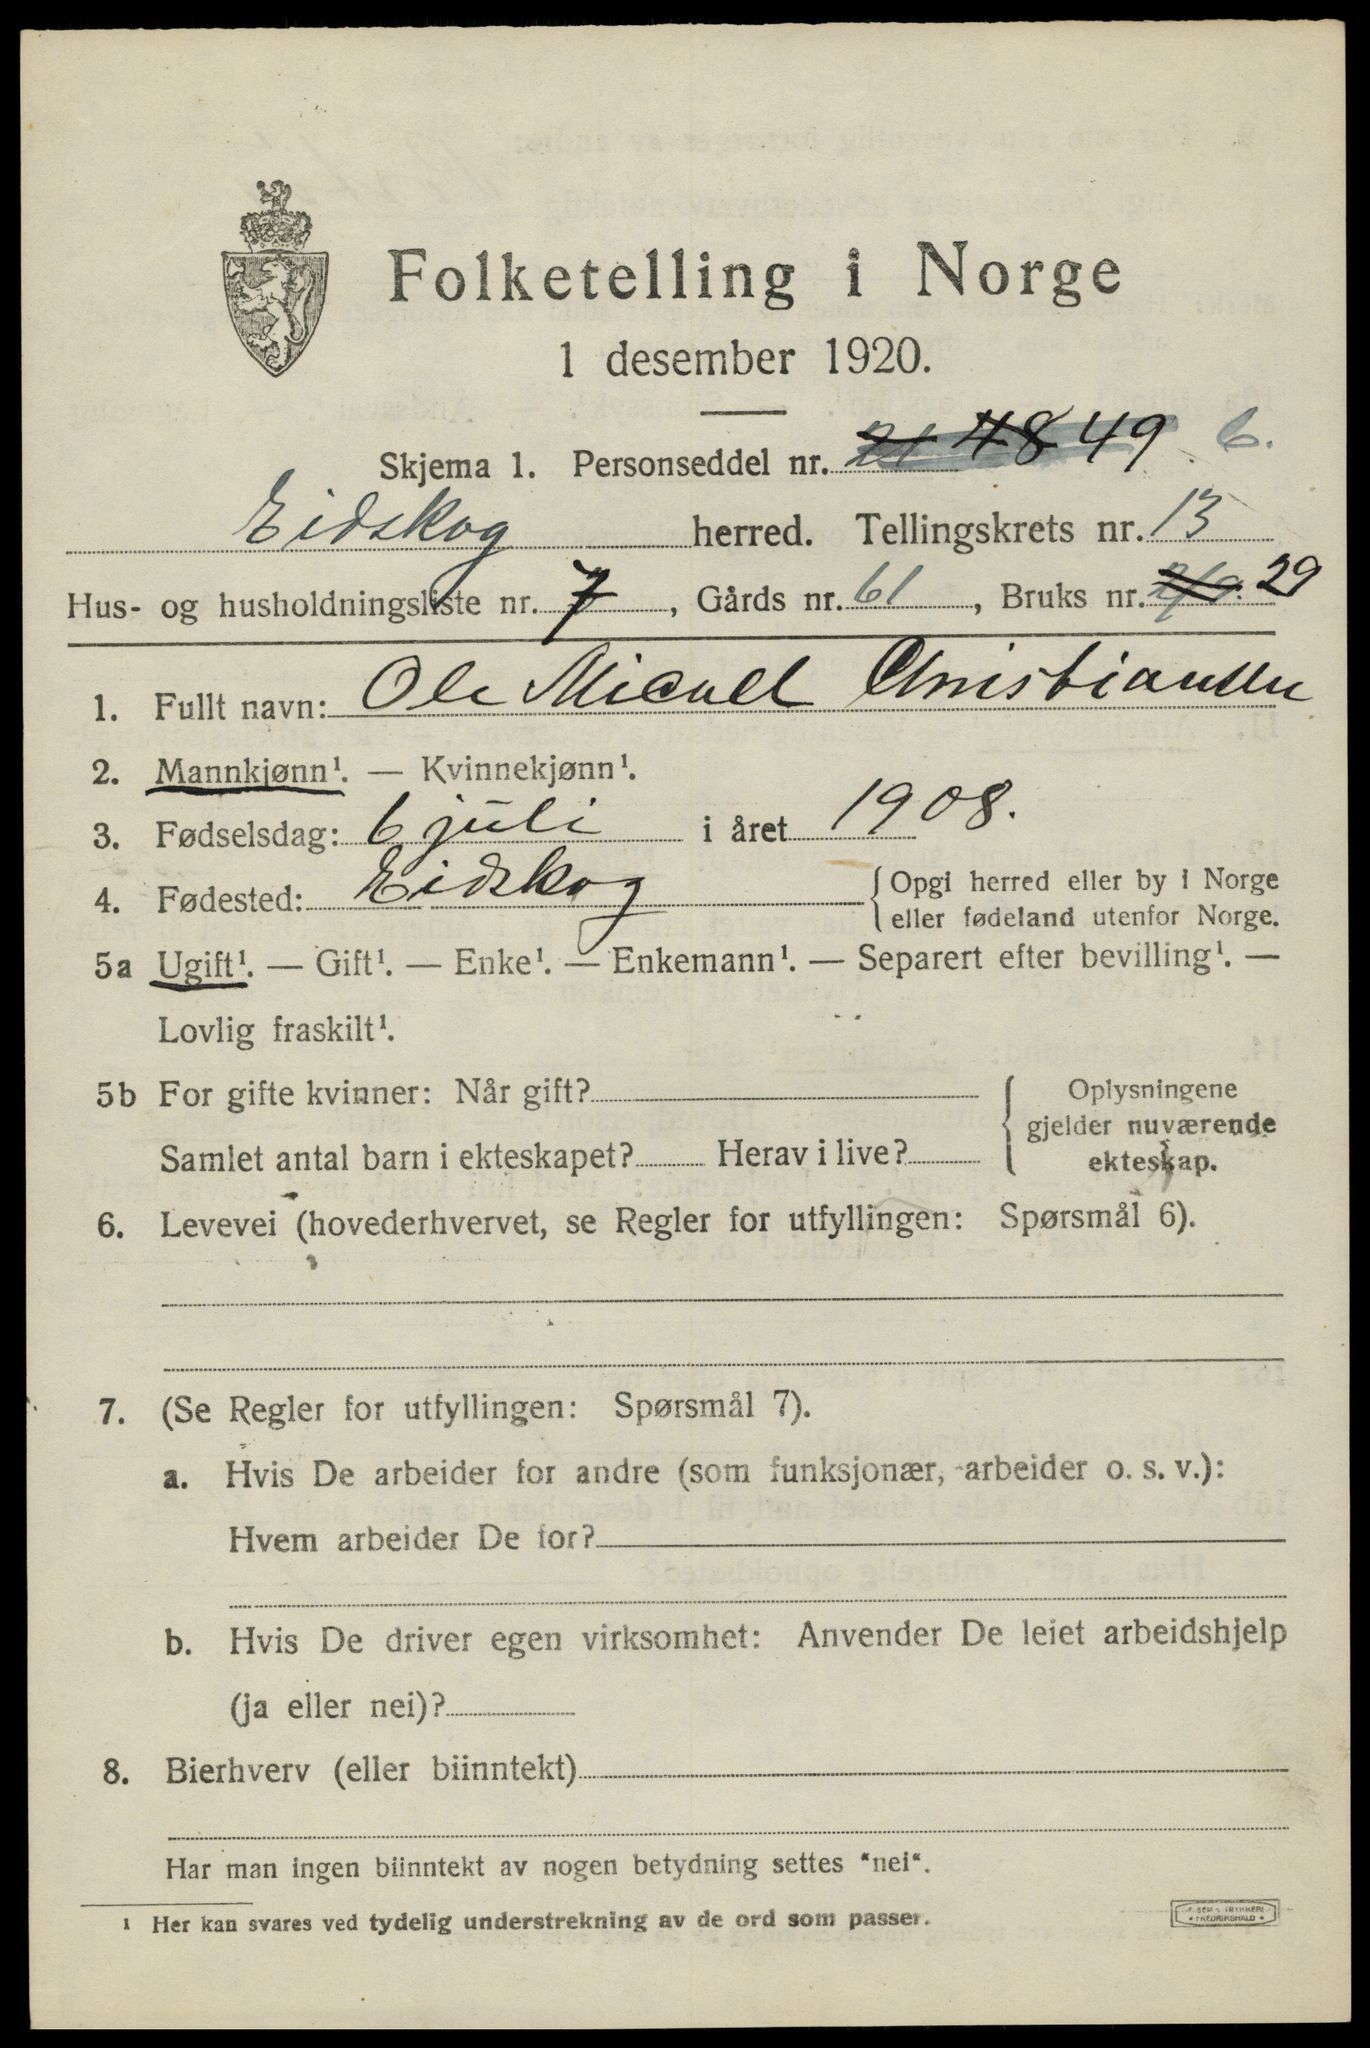 Folketelling i Norge
1 desember 1920.
Skjema 1. Personseddel nr. 21 48 49 6.
Eidskog herred. Tellingskrets nr. 13
Hus- og husholdningsliste nr. 7, Gårds nr. 61, Bruks nr. 29
1. Fullt navn: Ole Micael Christiansen
2. Mannkjønn¹. — Kvinnekjønn¹.
3. Fødselsdag: 6 juli i året 1908.
4. Fødested: Eidskog {Opgi herred eller by i Norge
eller fødeland utenfor Norge.
5a Ugift¹. — Gift¹. — Enke¹. — Enkemann¹. — Separert efter bevilling¹. —
Lovlig fraskilt¹.
5b For gifte kvinner: Når gift? { Oplysningene
gjelder nuværende
Samlet antal barn i ekteskapet? Herav i live? ekteskap.
6. Levevei (hovederhvervet, se Regler for utfyllingen: Spørsmål 6).
7. (Se Regler for utfyllingen: Spørsmål 7).
a. Hvis De arbeider for andre (som funksjonær, arbeider o. s. v.):
Hvem arbeider De for?
b. Hvis De driver egen virksomhet: Anvender De leiet arbeidshjelp
(ja eller nei)?
8. Bierhverv (eller biinntekt)
Har man ingen biinntekt av nogen betydning settes "nei".
1 Her kan svares ved tydelig understrekning av de ord som passer.
FREDRIKSHALD